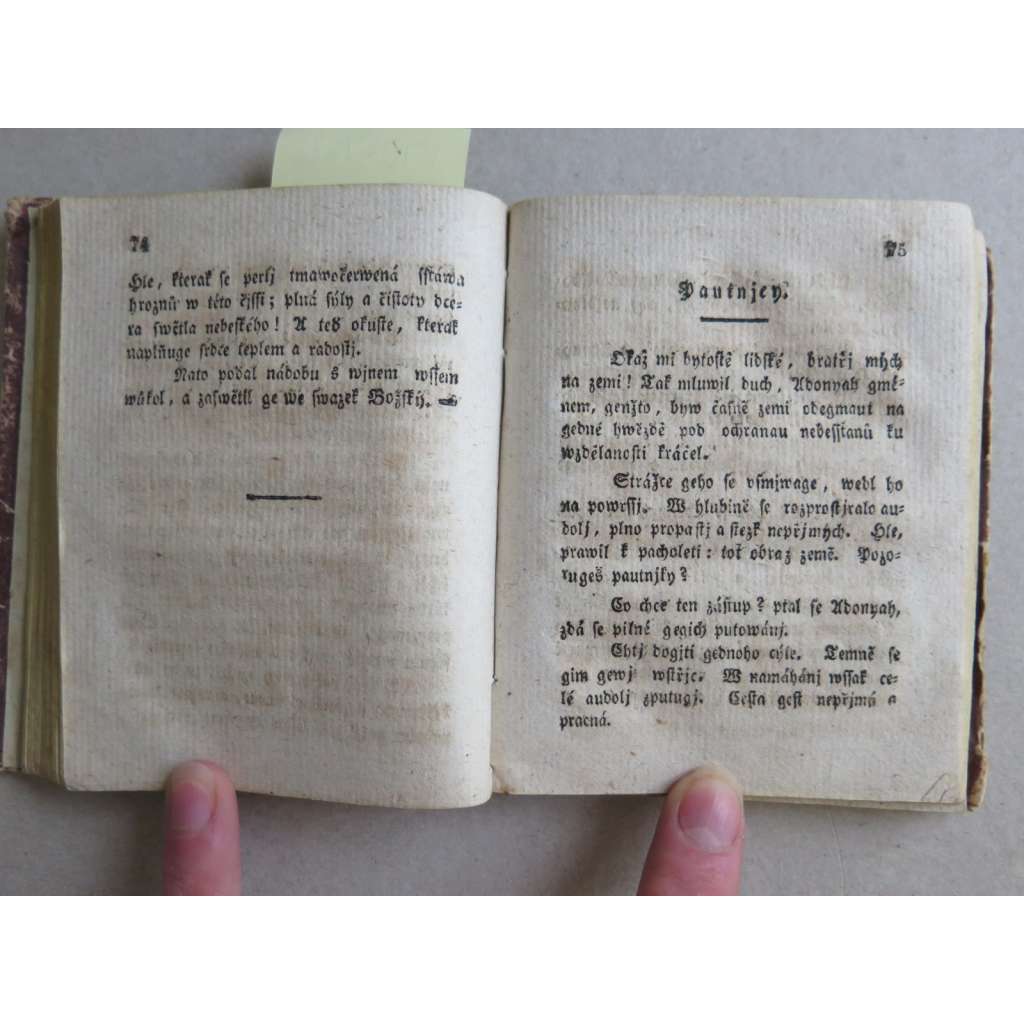 74
Hle, kterak se perlj tmawočerwená sstáwa
hroznů w této čjssi; plná sýly a čistoty dce-
ra swětla nebeského! A teď okuste, kterak
naplňuge srdce teplem a radostj.
Nato podal nádobu s wjnem wssem
wůkol, a zaswětil ge we swazek Božský.
75
Pautnjcy.
Okaž mi bytostě lidské, bratřj mých
na zemi! Tak mluwil duch, Adonyah gmé-
nem, genžto, byw časně zemi odegmaut na
gedné hwězdě pod ochranau nebessťanů ku
wzdělanosti kráčel.
Strážce geho se vsmjwage, wedl ho
na powrssj. W hlubině se rozprostjralo au-
dolj, plno propastj a stezk nepřjmých. Hle,
prawil k pacholeti: toť obraz země. Pozo-
rugeš pautnjky?
Co chce ten zástup? ptal se Adonyah,
zdá se pilné gegich putowánj.
Chtj dogjti gednoho cýle. Temně se
gim gewj wstřjc. W namáhánj wssak ce-
lé audolj zputugj. Cesta gest nepřjmá a
pracná.